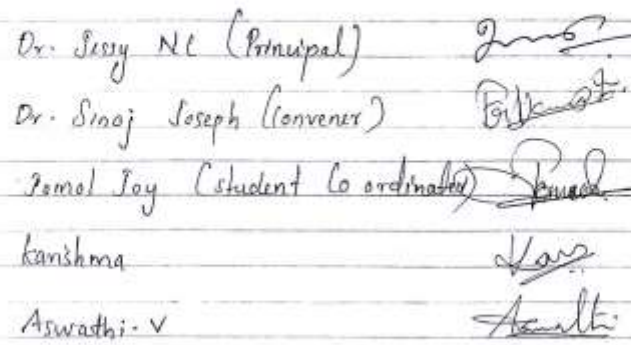 Dr. Jessy NC (Principal)
Dr. Sinoj Joseph (Convener)
Jomol Joy (student Co ordinator)
Karishma
Aswathi. V Aswathi